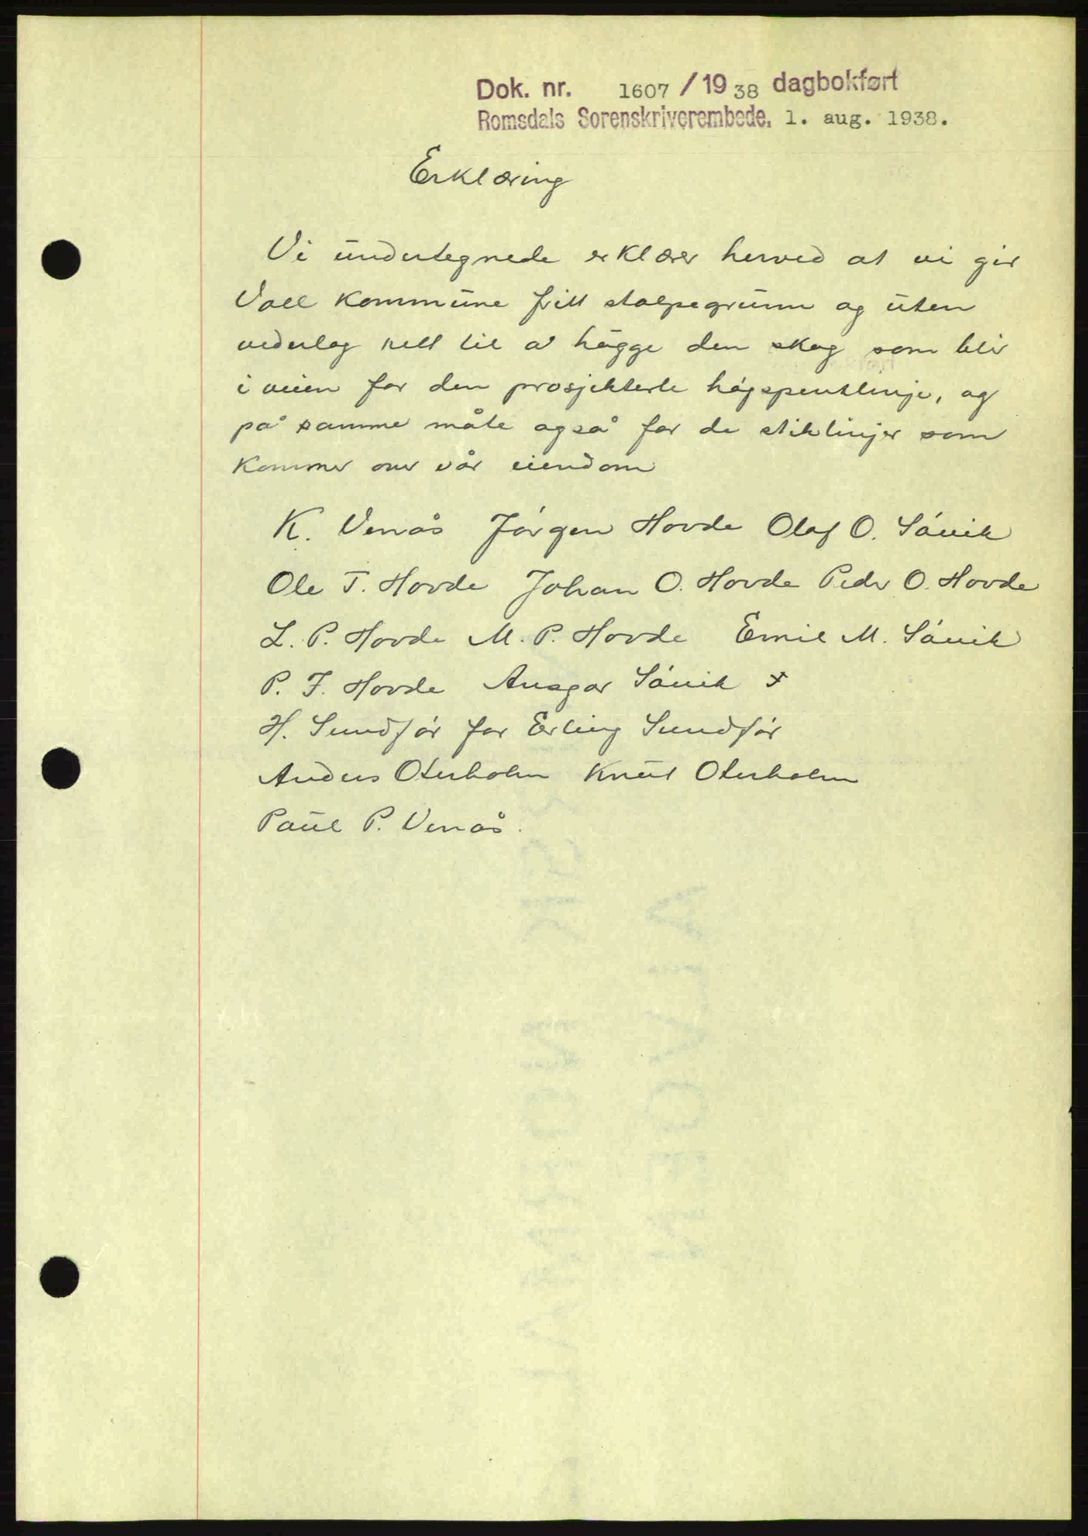 Dok. nr. 1607 / 19 38 dagbokført
Romsdals Sorenskriverembede. 1. aug. 1938.
Erklæring
Vi undertegnede erklærer herved at vi gir
Voll kommune fritt stolpegrunn og uten
vederlag rett til å hågge den skog som blir
i veien for den prosjekterte høgspentlinje, og
på samme måte også for de stiklinjer som
kommer over vår eiendom
K. Venås Jórgen Hovde Olaf O. Sóvik
Ole T. Hovde Johan O. Hovde Peder O. Hovde
L. P. Hovde M. P. Hovde Emil M. Sóvik
P. J. Hovde Ansgar Sóvik
H. Sundfór for Erling Sundfór
Anders Oterholm Knut Oterholm
Paul P. Venås.